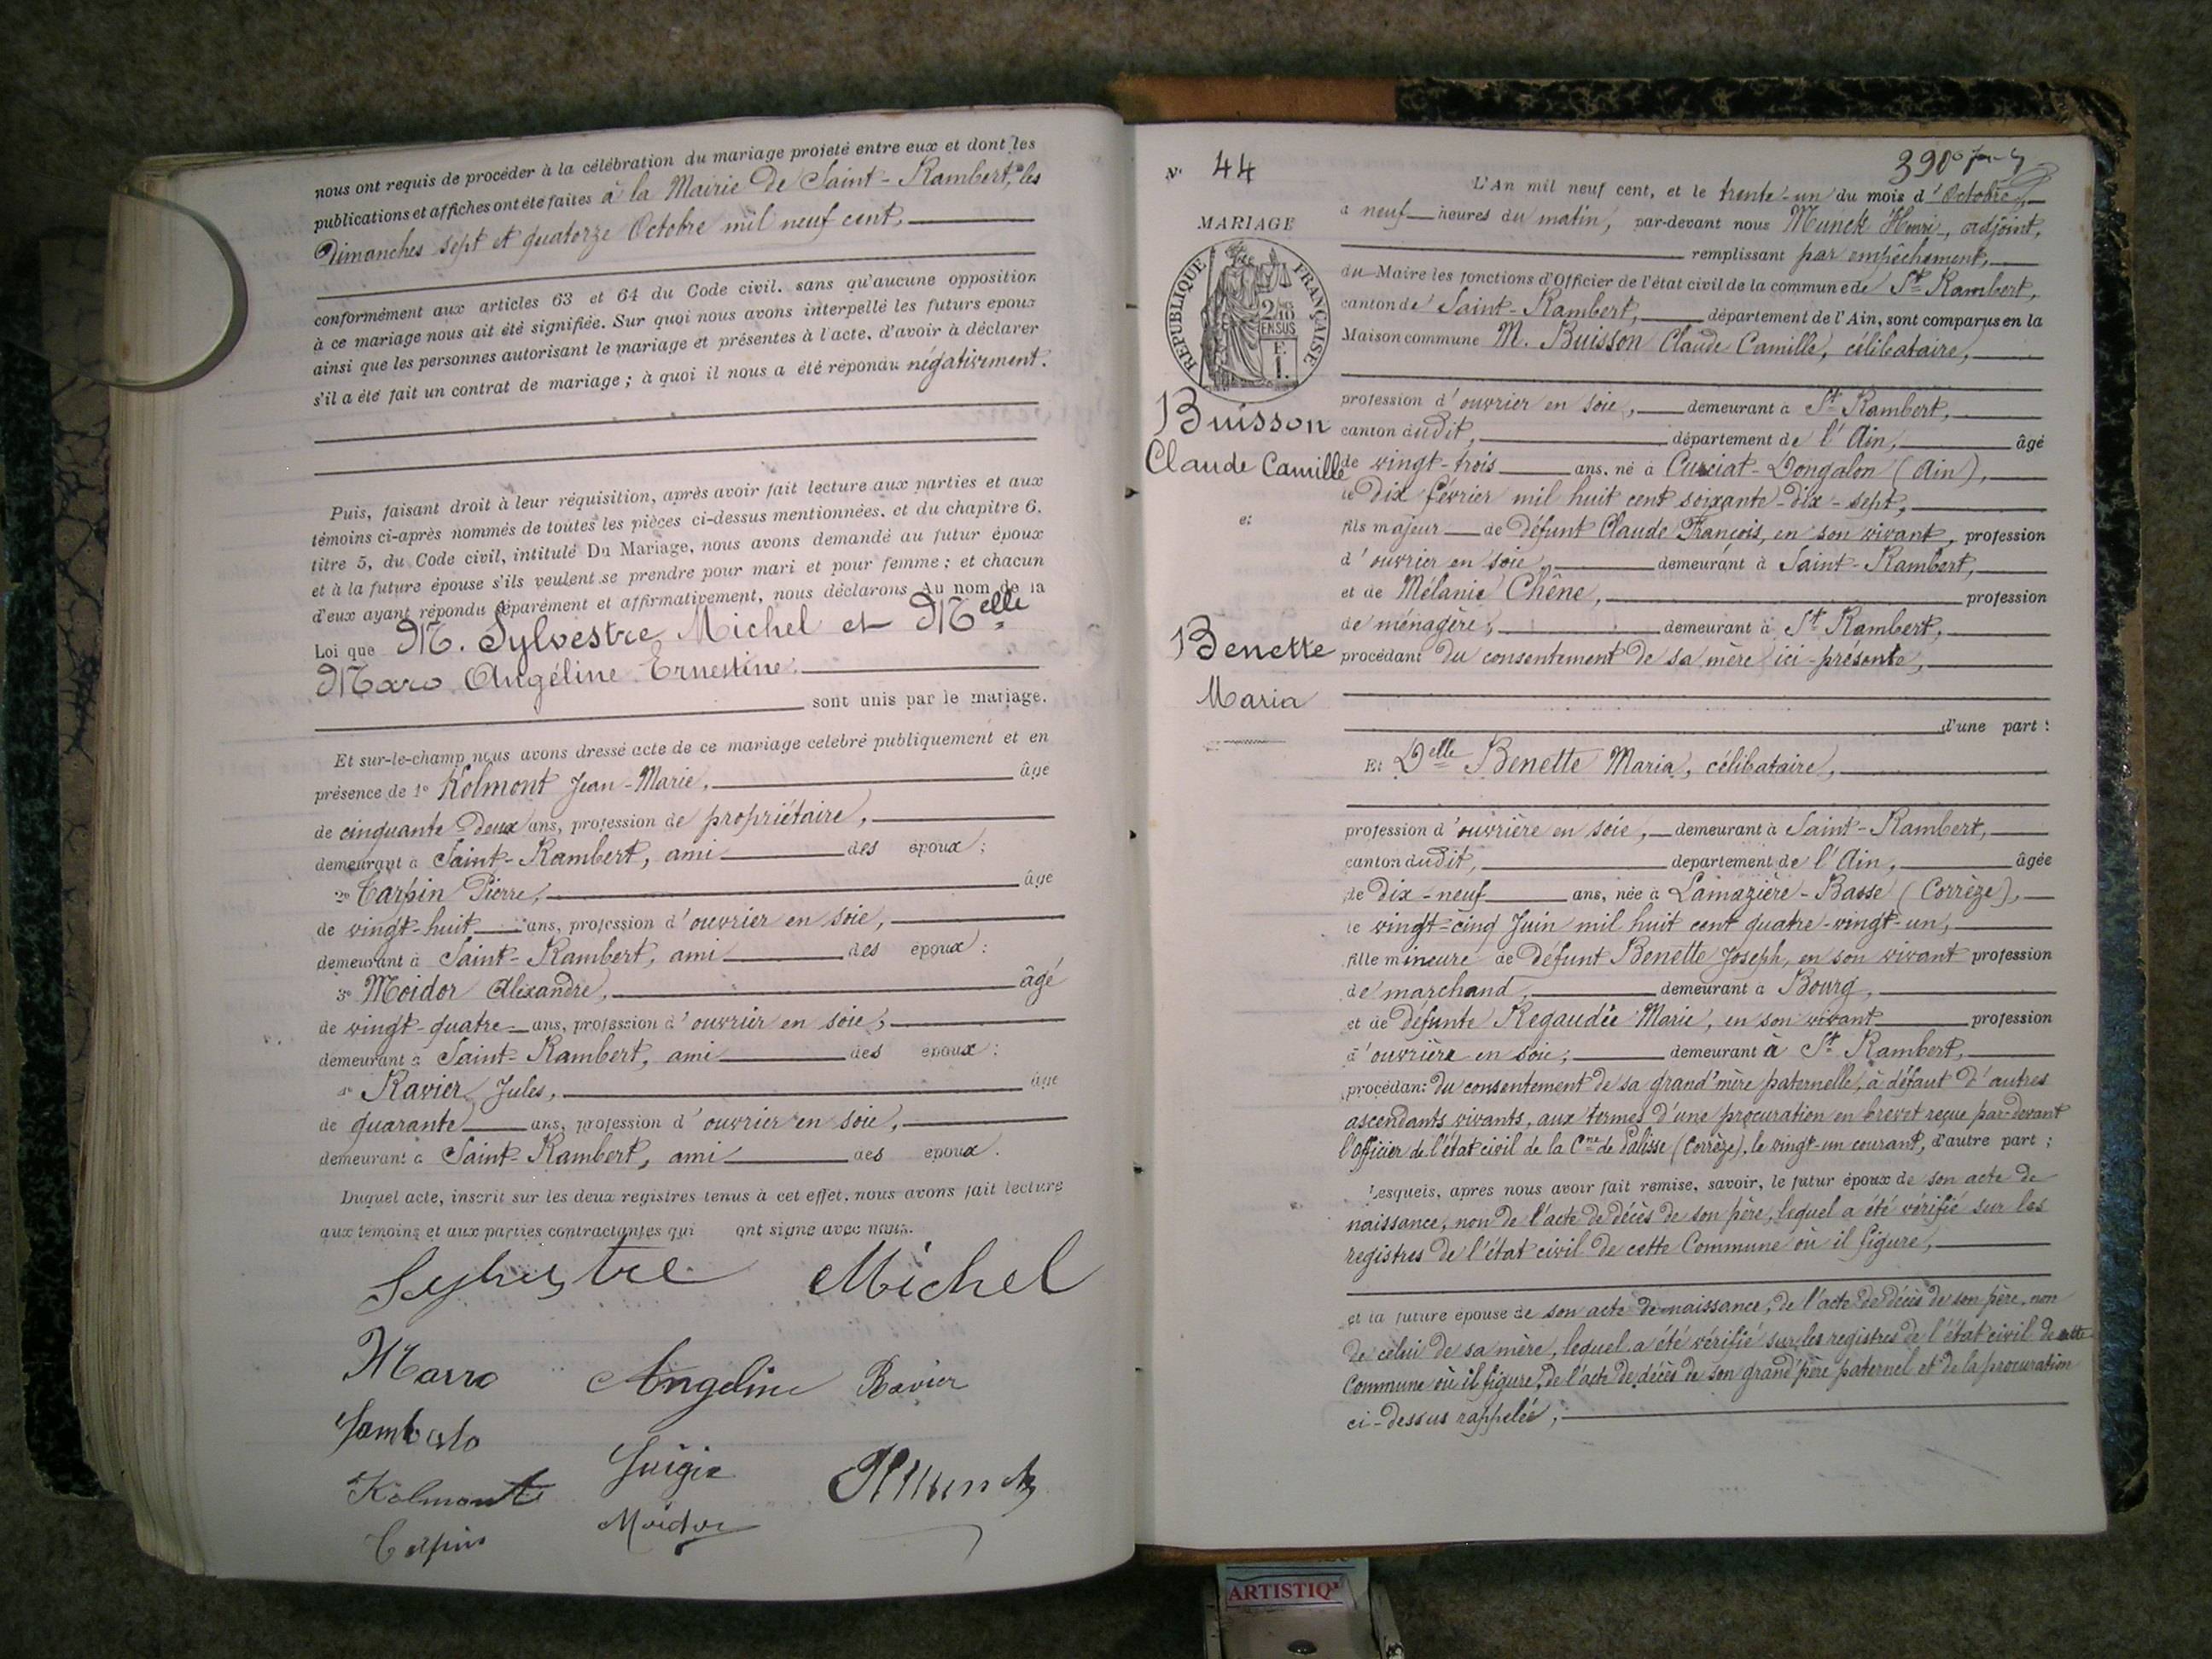 nous ont requis de procéder à la célébration du mariage projeté entre eux et dont les
publications et affiches ont été faites à la Mairie de Saint-Rambert, les
Dimanches sept et quatorze Octobre mil neuf cent,
conformément aux articles 63 et 64 du Code civil. sans qu'aucune opposition
à ce mariage nous ait été signifiée. Sur quoi nous avons interpellé les futurs époux
ainsi que les personnes autorisant le mariage et présentes à l'acte, d'avoir à déclarer
s'il a été fait un contrat de mariage ; à quoi il nous a été répondu négativement.
Puis, faisant droit à leur réquisition, après avoir fait lecture aux parties et aux
témoins ci-après nommés de toutes les pièces ci-dessus mentionnées, et du chapitre 6,
titre 5, du Code civil, intitulé Du Mariage, nous avons demandé au futur époux
et à la future épouse s'ils veulent se prendre pour mari et pour femme ; et chacun
d'eux ayant répondu séparément et affirmativement, nous déclarons Au nom de la
Loi que M. Sylvestre Michel et Melle
Maro Angéline Ernestine
sont unis par le mariage.
Et sur-le-champ nous avons dressé acte de ce mariage célébré publiquement et en
présence de 1o Kolmont Jean-Marie, âgé
de cinquante-deux ans, profession de propriétaire,
demeurant à Saint-Rambert, ami des époux :
2o Carpin Pierre, âgé
de vingt-huit ans, profession d'ouvrier en soie,
demeurant à Saint-Rambert, ami des époux :
3o Moidor Alexandre, âgé
de vingt-quatre ans, profession d'ouvrier en soie,
demeurant à Saint-Rambert, ami des époux :
4o Ravier Jules, âgé
de quarante ans, profession d'ouvrier en soie,
demeurant à Saint-Rambert, ami des époux.
Duquel acte, inscrit sur les deux registres tenus à cet effet, nous avons fait lecture
aux témoins et aux parties contractantes qui ont signé avec nous.
Sylvestre Michel
Marro Angeline Ravier
Kolmont
Moidor
Carpin
Munck
No 44
MARIAGE
RÉPUBLIQUE FRANÇAISE
2/10
EN SUS
Buisson
Claude Camille
et
Benette
Maria
L'An mil neuf cent, et le trente-un du mois d'Octobre,
à neuf heures du matin, par-devant nous Munck Henri, adjoint,
remplissant par empêchement,
du Maire les fonctions d'Officier de l'état civil de la commune de St Rambert,
canton de Saint-Rambert, département de l'Ain, sont comparus en la
Maison commune M. Buisson Claude Camille, célibataire,
profession d'ouvrier en soie, demeurant à St Rambert,
canton dudit, département de l'Ain, âgé
de vingt-trois ans, né à Curciat-Dongalon (Ain),
le dix février mil huit cent soixante-dix-sept,
fils majeur de défunt Claude François, en son vivant, profession
d'ouvrier en soie, demeurant à Saint-Rambert,
et de Mélanie Chêne, profession
de ménagère, demeurant à St Rambert,
procédant du consentement de sa mère ici-présente,
d'une part :
Et Delle Benette Maria, célibataire,
profession d'ouvrière en soie, demeurant à Saint-Rambert,
canton dudit, département de l'Ain, âgée
de dix-neuf ans, née à Lamazière-Basse (Corrèze),
le vingt-cinq Juin mil huit cent quatre-vingt-un,
fille mineure de défunt Benette Joseph, en son vivant profession
de marchand, demeurant à Bourg,
et de défunte Regaudie Marie, en son vivant profession
d'ouvrière en soie, demeurant à St Rambert,
procédant du consentement de sa grand'mère paternelle, à défaut d'autres
ascendants vivants, aux termes d'une procuration en brevet reçue par-devant
l'Officier de l'état civil de la Cne de Palisse (Corrèze), le vingt-un courant, d'autre part ;
Lesquels, après nous avoir fait remise, savoir, le futur époux de son acte de
naissance, non de l'acte de décès de son père, lequel a été vérifié sur les
registres de l'état civil de cette Commune où il figure,
et la future épouse de son acte de naissance, de l'acte de décès de son père, non
de celui de sa mère, lequel a été vérifié sur les registres de l'état civil de cette
Commune où il figure, de l'acte de décès de son grand'père paternel et de la procuration
ci-dessus rappelée,
ARTISTIQ